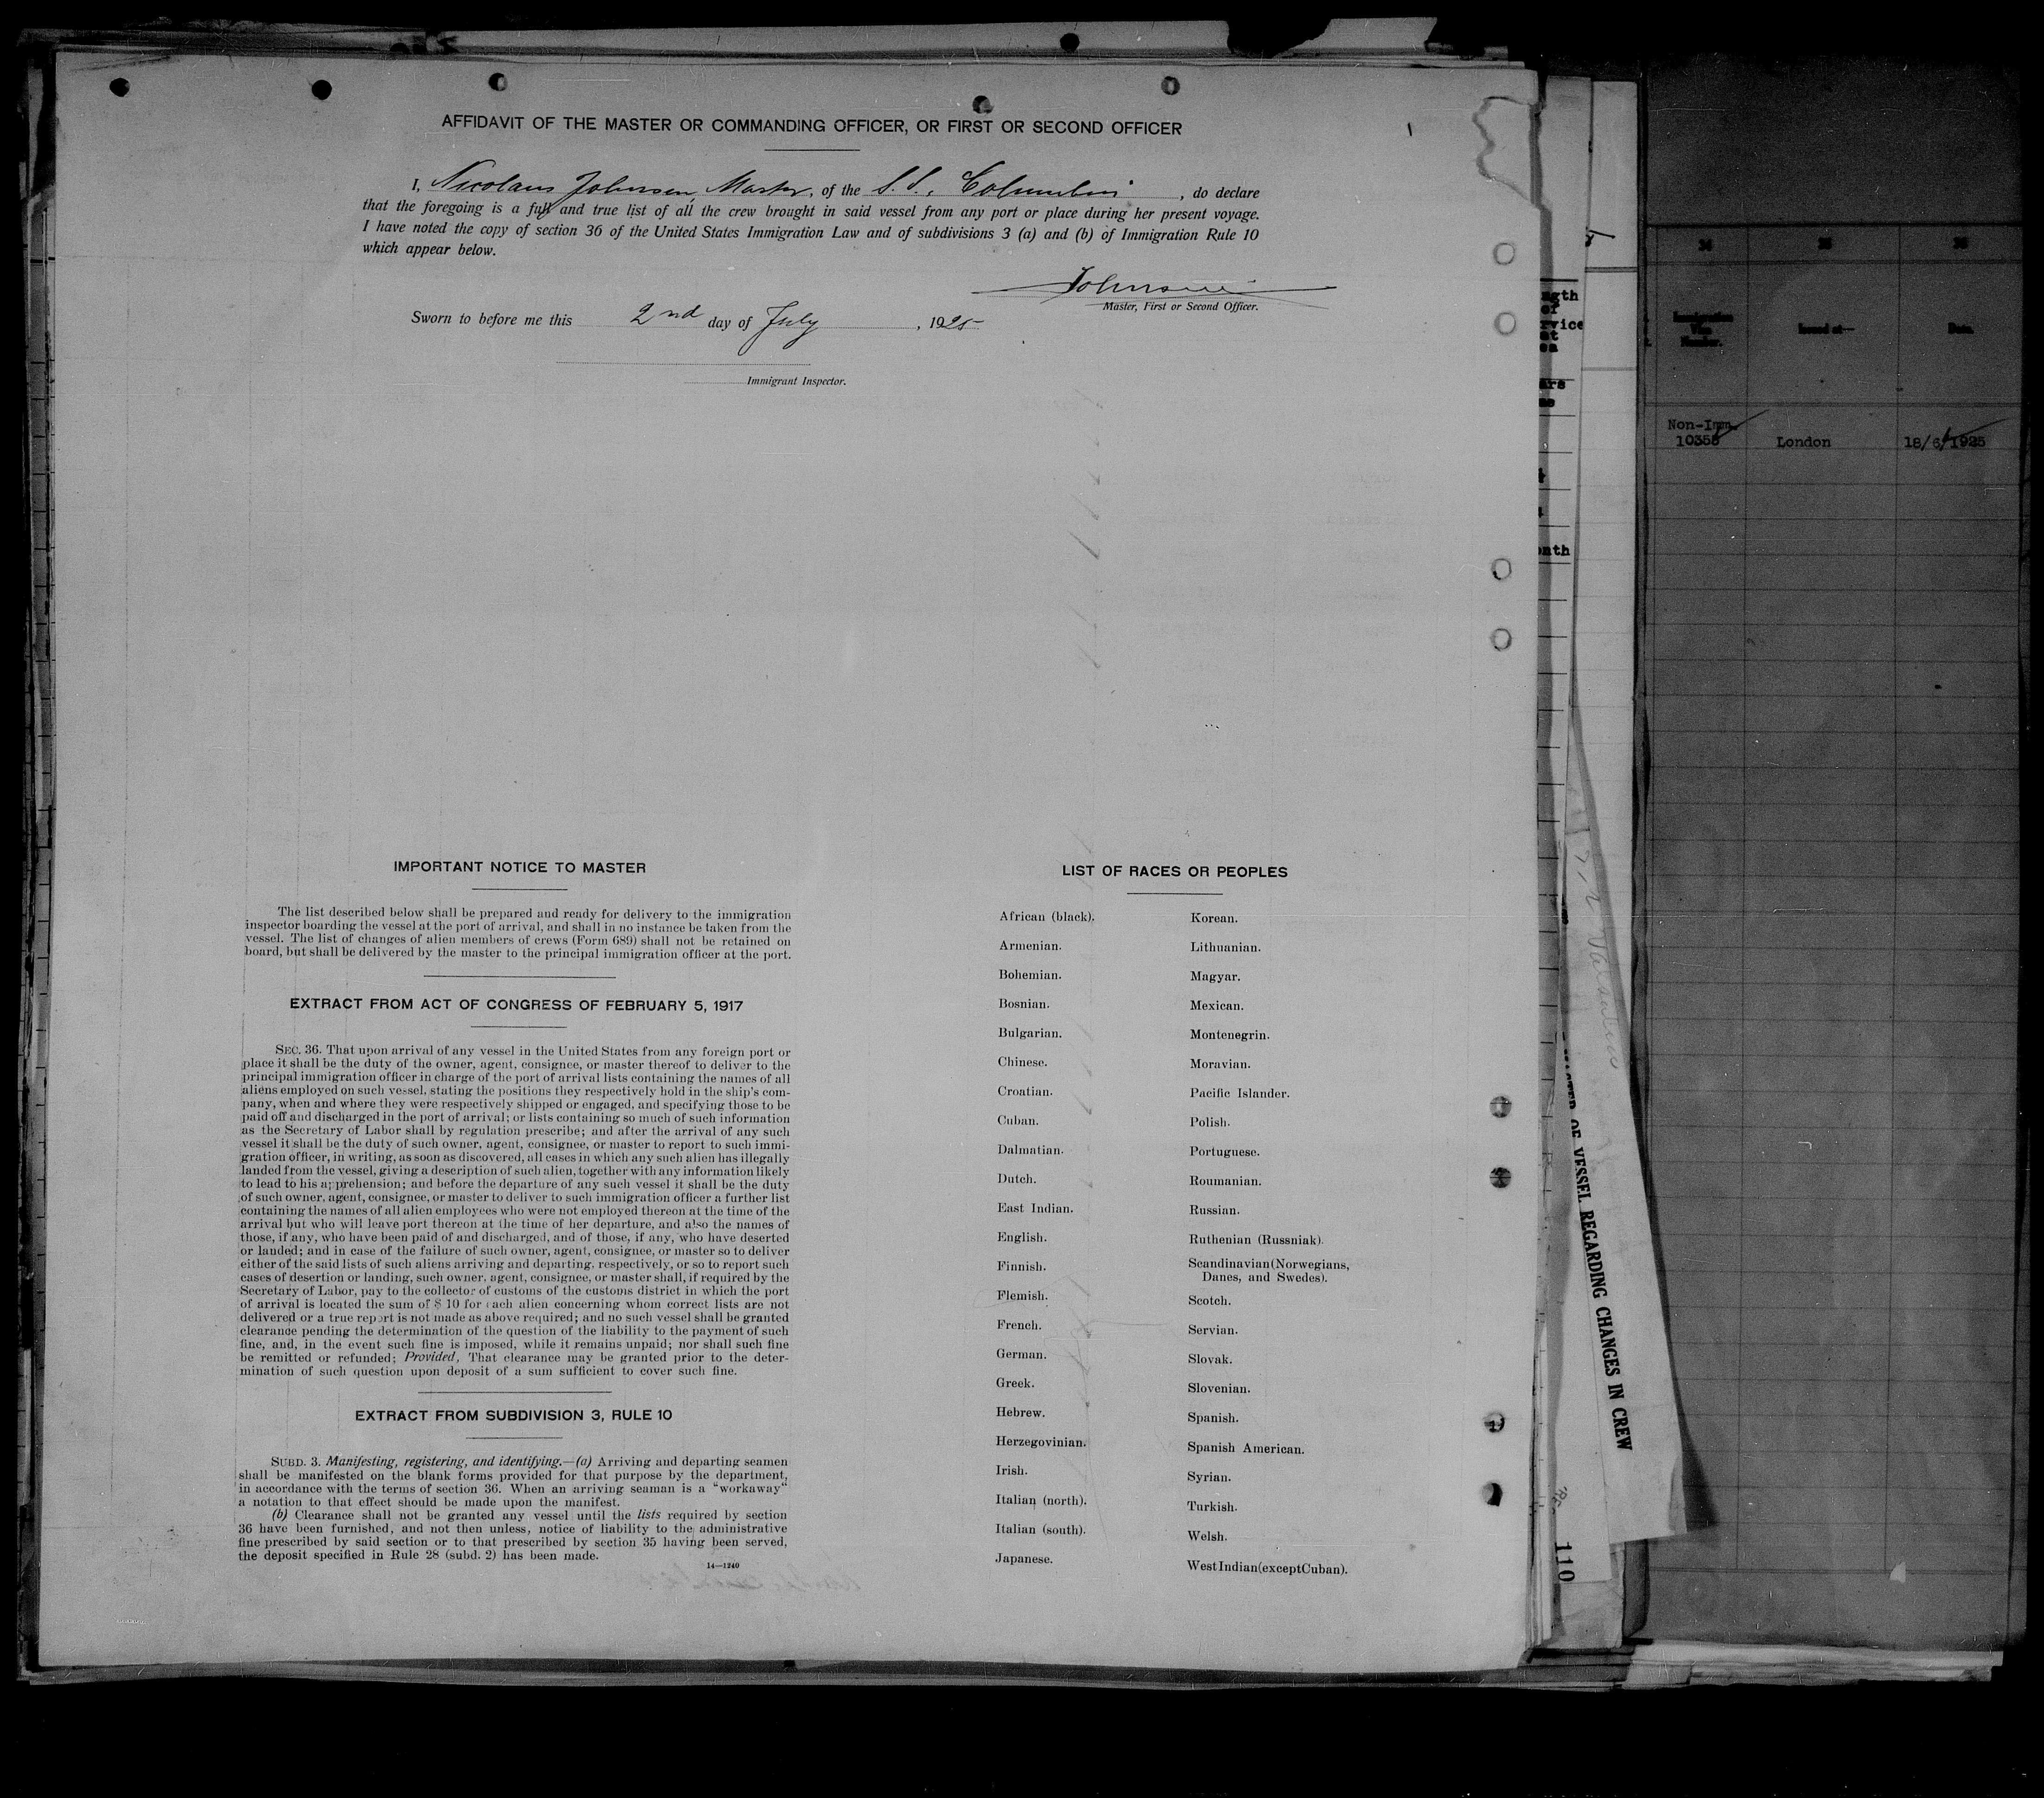 AFFIDAVIT OF THE MASTER OR COMMANDING OFFICER, OR FIRST OR SECOND OFFICER
I, Nicolaus Johnsen, Master, of the S.S. Columbus, do declare
that the foregoing is a full and true list of all the crew brought in said vessel from any port or place during her present voyage.
I have noted the copy of section 36 of the United States Immigration Law and of subdivisions 3 (a) and (b) of Immigration Rule 10
which appear below.
Johnsen
Master, First or Second Officer.
Sworn to before me this 2nd day of July, 1925
Immigrant Inspector.
IMPORTANT NOTICE TO MASTER
The list described below shall be prepared and ready for delivery to the immigration
inspector boarding the vessel at the port of arrival, and shall in no instance be taken from the
vessel. The list of changes of alien members of crews (Form 689) shall not be retained on
board, but shall be delivered by the master to the principal immigration officer at the port.
EXTRACT FROM ACT OF CONGRESS OF FEBRUARY 5, 1917
SEC. 36. That upon arrival of any vessel in the United States from any foreign port or
place it shall be the duty of the owner, agent, consignee, or master thereof to deliver to the
principal immigration officer in charge of the port of arrival lists containing the names of all
aliens employed on such vessel, stating the positions they respectively hold in the ship's com-
pany, when and where they were respectively shipped or engaged, and specifying those to be
paid off and discharged in the port of arrival; or lists containing so much of such information
as the Secretary of Labor shall by regulation prescribe; and after the arrival of any such
vessel it shall be the duty of such owner, agent, consignee, or master to report to such immi-
gration officer, in writing, as soon as discovered, all cases in which any such alien has illegally
landed from the vessel, giving a description of such alien, together with any information likely
to lead to his apprehension; and before the departure of any such vessel it shall be the duty
of such owner, agent, consignee, or master to deliver to such immigration officer a further list
containing the names of all alien employees who were not employed thereon at the time of the
arrival but who will leave port thereon at the time of her departure, and also the names of
those, if any, who have been paid of and discharged, and of those, if any, who have deserted
or landed; and in case of the failure of such owner, agent, consignee, or master so to deliver
either of the said lists of such aliens arriving and departing, respectively, or so to report such
cases of desertion or landing, such owner, agent, consignee, or master shall, if required by the
Secretary of Labor, pay to the collector of customs of the customs district in which the port
of arrival is located the sum of $ 10 for each alien concerning whom correct lists are not
delivered or a true report is not made as above required; and no such vessel shall be granted
clearance pending the determination of the question of the liability to the payment of such
fine, and, in the event such fine is imposed, while it remains unpaid; nor shall such fine
be remitted or refunded; Provided, That clearance may be granted prior to the deter-
mination of such question upon deposit of a sum sufficient to cover such fine.
EXTRACT FROM SUBDIVISION 3, RULE 10
SUBD. 3. Manifesting, registering, and identifying.—(a) Arriving and departing seamen
shall be manifested on the blank forms provided for that purpose by the department,
in accordance with the terms of section 36. When an arriving seaman is a "workaway"
a notation to that effect should be made upon the manifest.
(b) Clearance shall not be granted any vessel until the lists required by section
36 have been furnished, and not then unless, notice of liability to the administrative
fine prescribed by said section or to that prescribed by section 35 having been served,
the deposit specified in Rule 28 (subd. 2) has been made.
14—1240
LIST OF RACES OR PEOPLES
African (black).
Armenian.
Bohemian.
Bosnian.
Bulgarian.
Chinese.
Croatian.
Cuban.
Dalmatian.
Dutch.
East Indian.
English.
Finnish.
Flemish.
French.
German.
Greek.
Hebrew.
Herzegovinian.
Irish.
Italian (north).
Italian (south).
Japanese.
Korean.
Lithuanian.
Magyar.
Mexican.
Montenegrin.
Moravian.
Pacific Islander.
Polish.
Portuguese.
Roumanian.
Russian.
Ruthenian (Russniak).
Scandinavian (Norwegians,
Danes, and Swedes).
Scotch.
Servian.
Slovak.
Slovenian.
Spanish.
Spanish American.
Syrian.
Turkish.
Welsh.
West Indian (except Cuban).
OF VESSEL REGARDING CHANGES IN CREW
110
34 35 36
Immigration
Visa
Number.
Issued at—
Date.
Non-Imm.
10358 London 18/6/1925